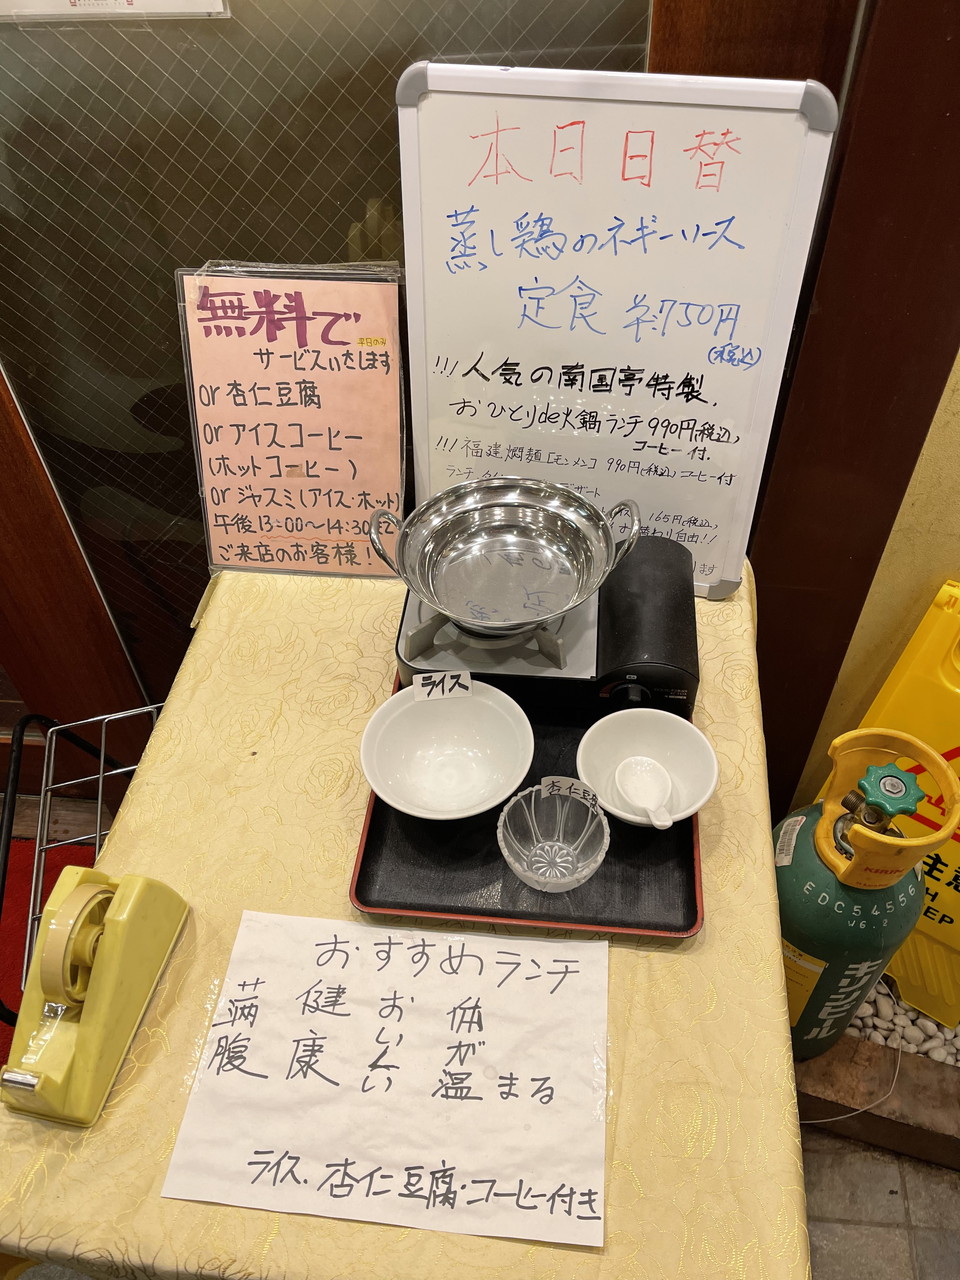 本日日替
蒸し鶏のネギソース
定食 750円
(税込)
!!! 人気の南国亭特製.
おひとりde火鍋ランチ 990円(税込)
コーヒー付.
!!! 福建燜麺[モンメン] 990円(税込) コーヒー付
ランチ
デザート
165円(税込)
替わり自由!!
ます
無料で
平日のみ
サービスいたします
or 杏仁豆腐
or アイスコーヒー
(ホットコーヒー)
or ジャスミ(アイス・ホット)
午後13:00〜14:30まで
ご来店のお客様!
ライス
杏仁豆腐
おすすめランチ
満腹
健康
おいしい
体が温まる
ライス.杏仁豆腐・コーヒー付き
KIRIN
EDC54556
キリンビール
注意